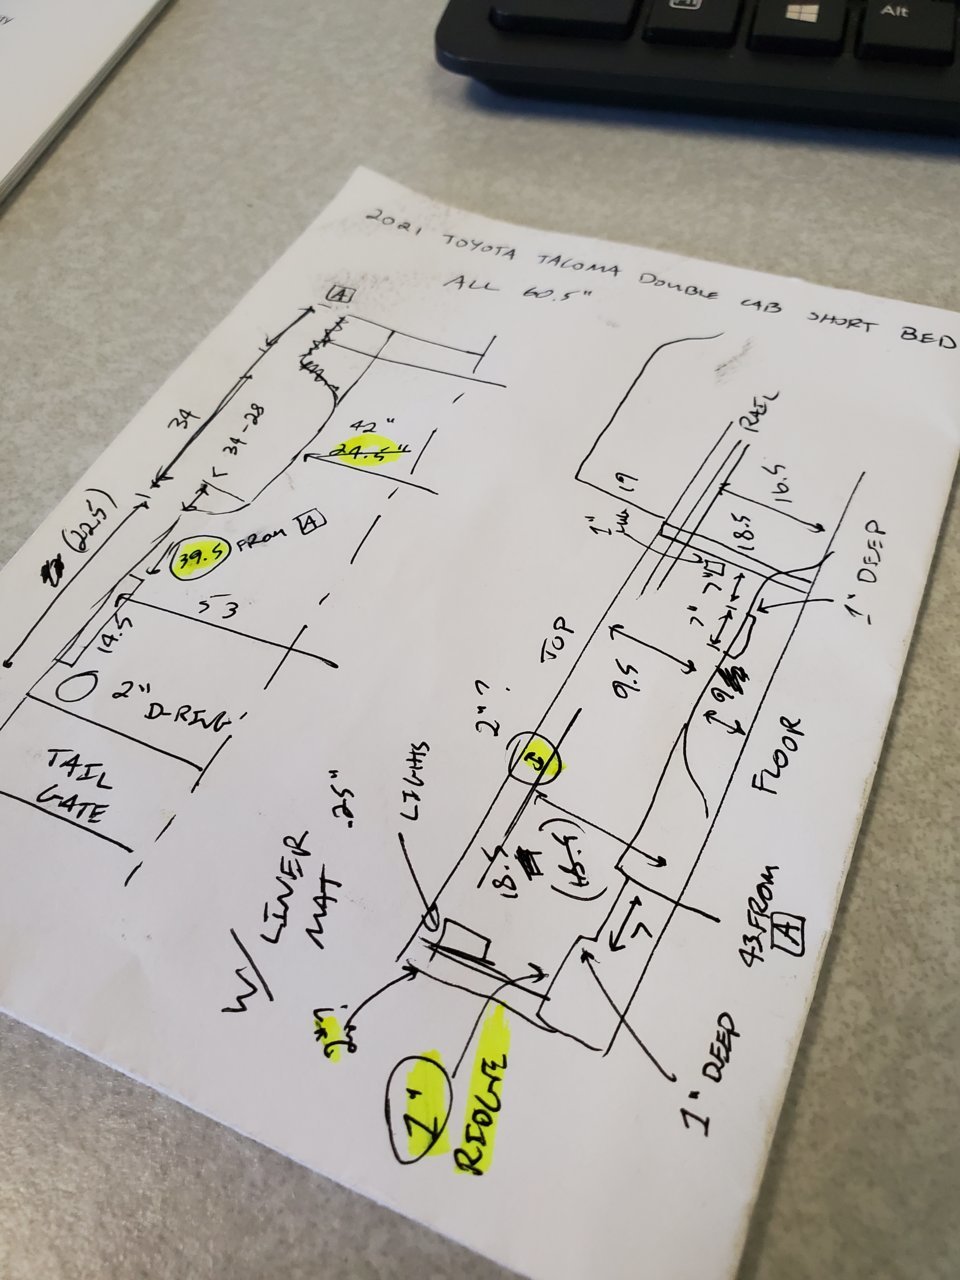 Alt
2021 TOYOTA TACOMA DOUBLE CAB SHORT BED
ALL 60.5"
A
34
34-28
42"
24.5"
(22.5)
39.5 FROM A
53
14.5
2"
D-RING
TAIL
GATE
W/ LINER
MAT .25"
RAIL
19
1"
16.5
18.5
7"
7"
1" DEEP
TOP
9.5
9
FLOOR
2"?
LIGHTS
18.5
(18.5)
7
43 FROM
A
1" DEEP
1"